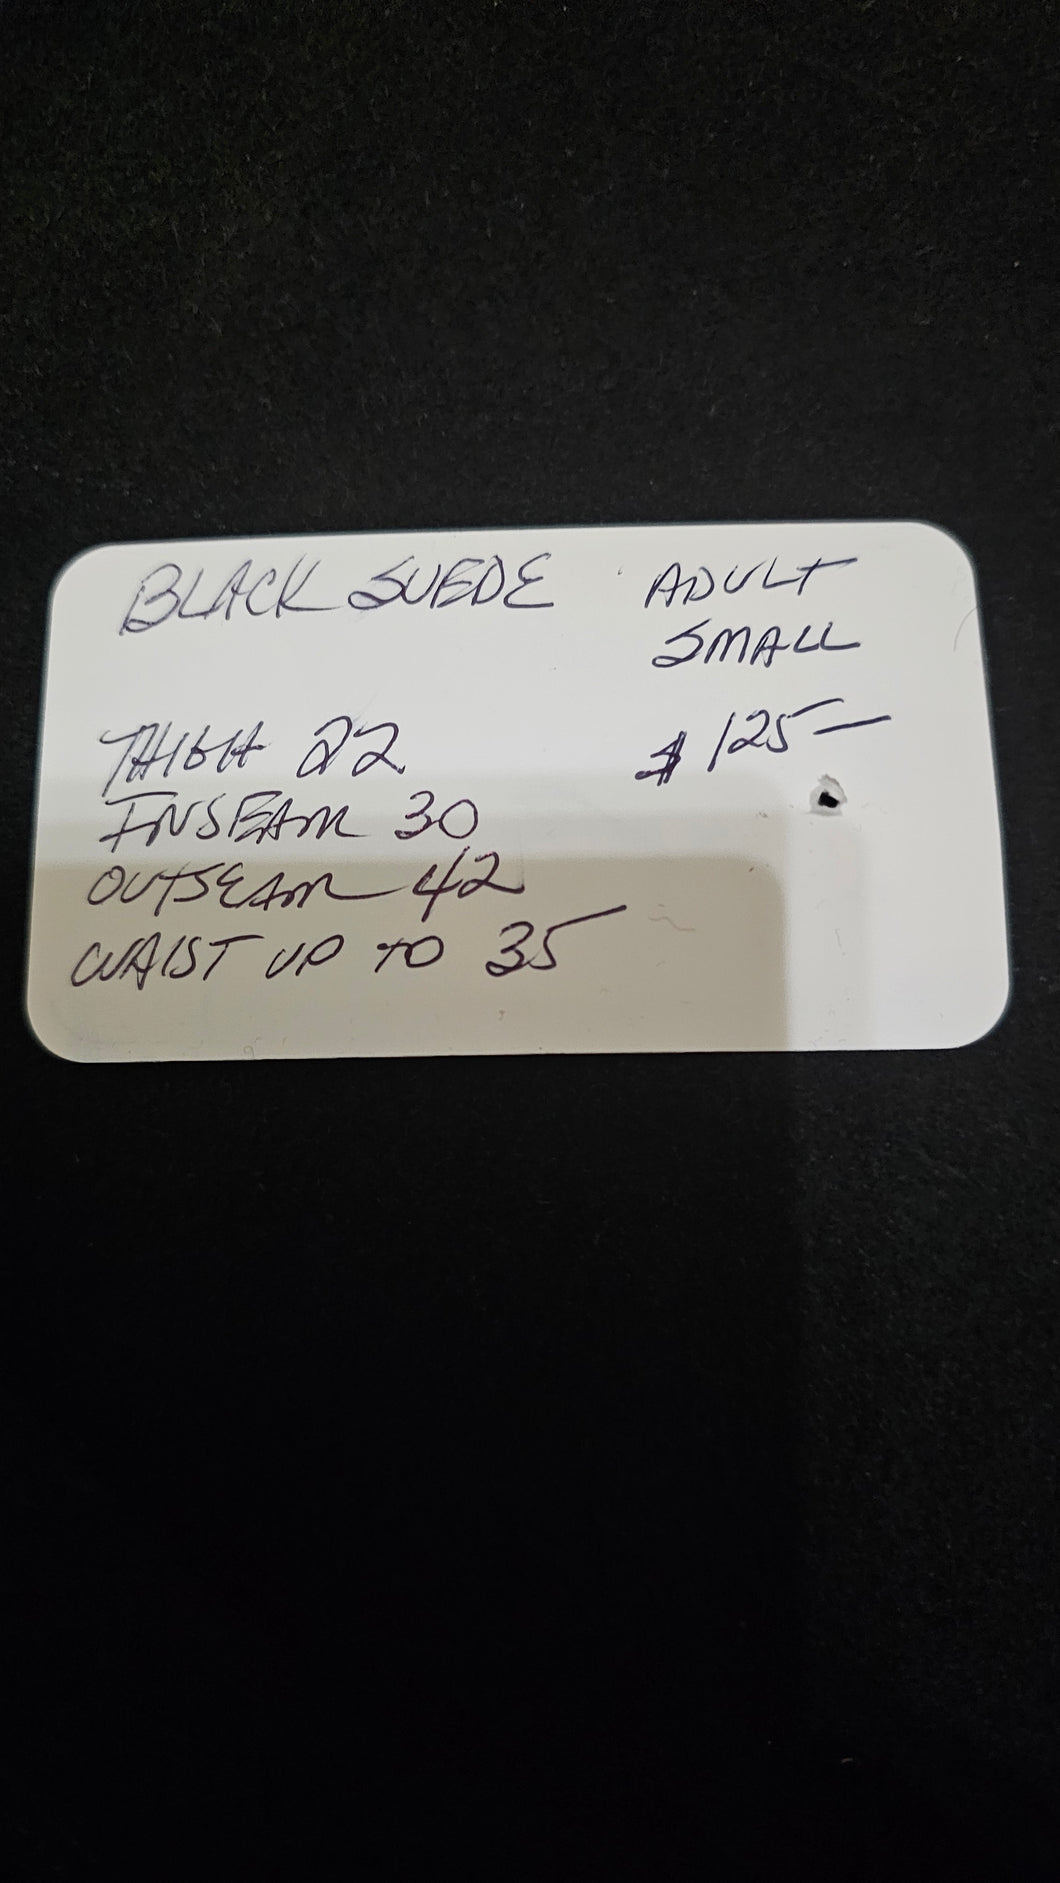 BLACK SUEDE
ADULT
SMALL
$125—
THIGH 22
INSEAM 30
OUTSEAM 42
WAIST UP TO 35